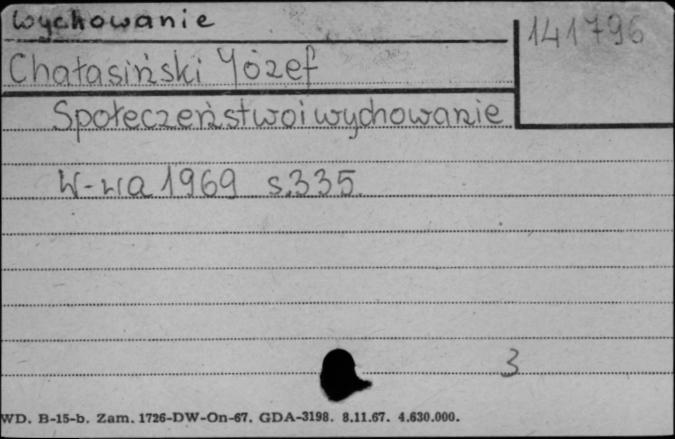 Wychowanie
141796
Chałasiński Józef
Społeczeństwo i wychowanie
W-wa 1969 s.335
3
WD. B-15-b. Zam. 1726-DW-On-67. GDA-3198. 8.11.67. 4.630.000.